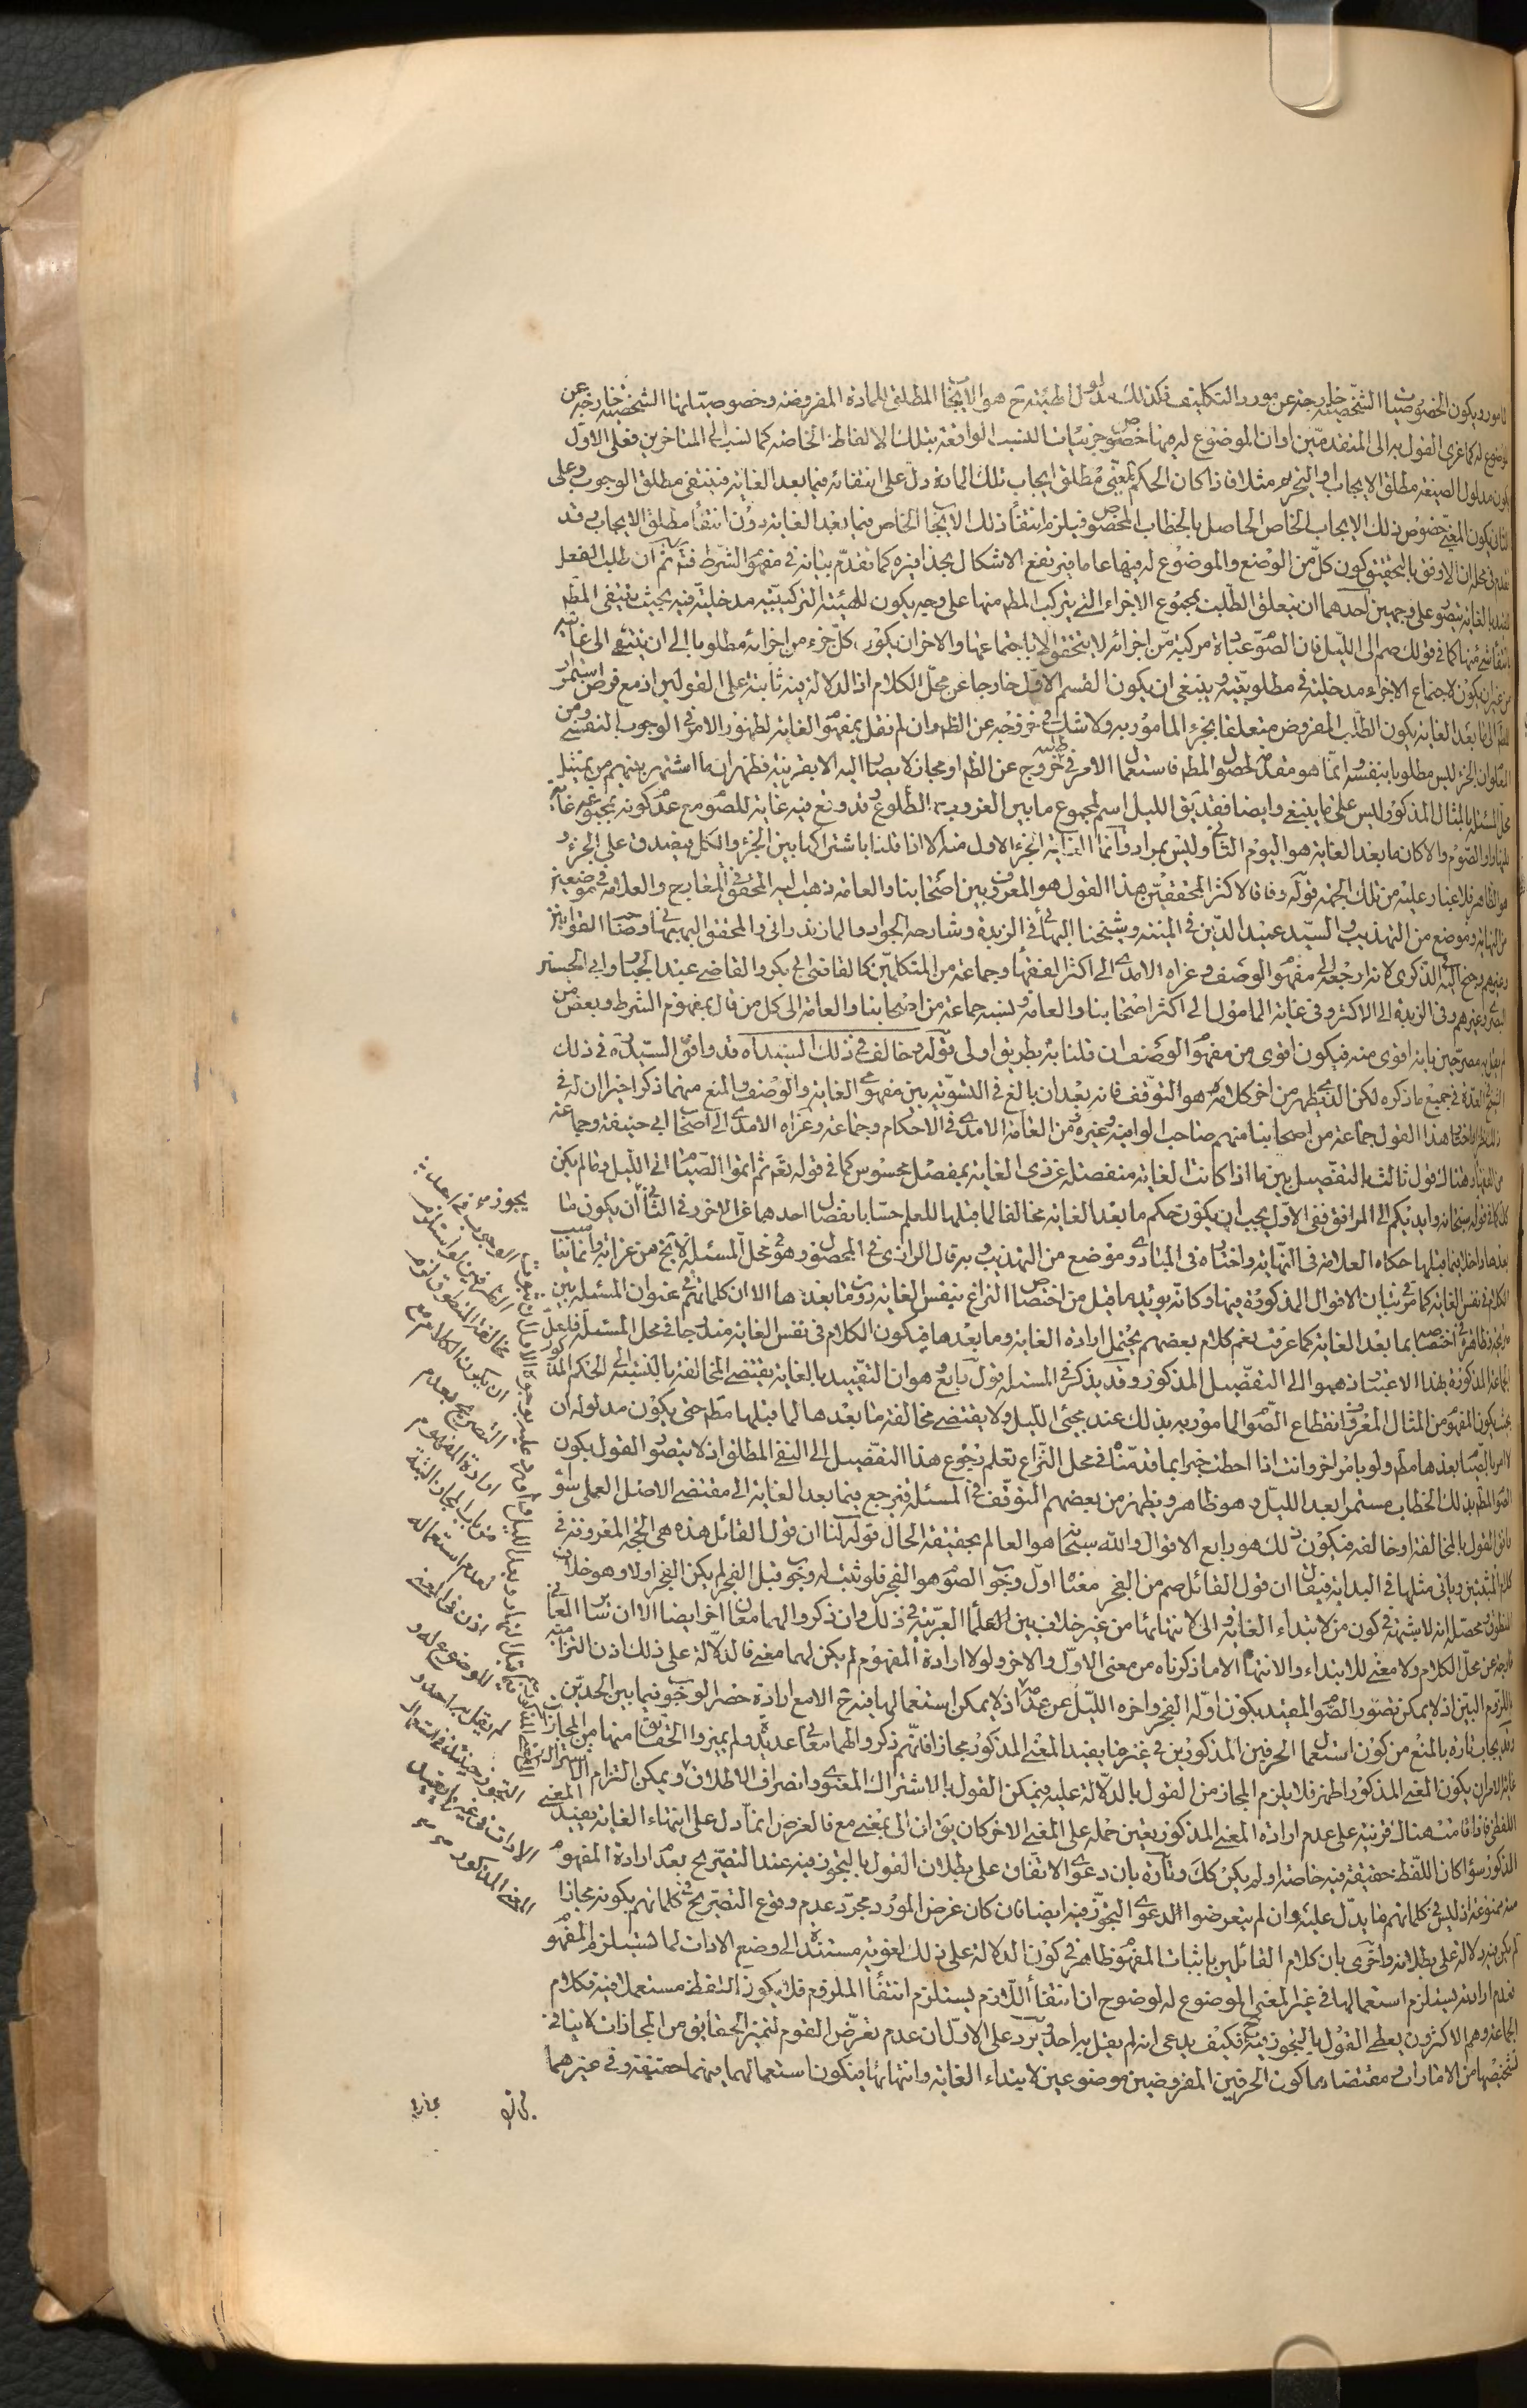 المامور ويكون الخصوصيات الشخصية خارجة عن مورد التكليف فكذلك مدلول الهيئة ح هو الايجاب المطلق للمادة المفروضة وخصوصياتها الشخصية خارجة عن
الموضوع له كما عزى القول به الى المتقدمين او ان الموضوع له منها خصوص جزئيات النسب الواقعة بتلك الالفاظ الخاصة كما نسب الى المتاخرين فعلى الاول
يكون مدلول الصيغة مطلق الايجاب او التحريم مثلا فاذا كان الحكم المغيى مطلق ايجاب تلك المادة دل على انتفائه فيما بعد الغاية فينتفى مطلق الوجوب وعلى
الثانى يكون المغيى خصوص ذلك الايجاب الخاص الحاصل بالخطاب المخصوص فيلزم انتفاء ذلك الايجاب الخاص فيما بعد الغاية دون انتفاء مطلق الايجاب وقد
فى محله ان الاوفق بالتحقيق كون كل من الوضع والموضوع له فيها عاما فيرتفع الاشكال بحذافيره كما تقدم بيانه فى مفهوم الشرط ثم ان طلب الفعل
المقيد بالغاية يتصور على وجهين احدهما ان يتعلق الطلب بمجموع الاجزاء التى يتركب المطم منها على وجه يكون للهيئة التركيبية مدخلية فيه بحيث ينتفى المطم
بانتفاء شئ منها كما فى قولك صم الى الليل فان الصوم عبارة مركبة من اجزائه لا يتحقق الا باجتماعها والاخر ان يكون كل جزء من اجزائه مطلوبا الى ان ينتهى الى غايته
من غير ان يكون لاجتماع الاجزاء مدخلية فى مطلوبيته وينبغى ان يكون القسم الاول خارجا عن محل الكلام اذ الدلالة فيه ثابتة على القولين اذ مع فرض استمرار
الى ما بعد الغاية يكون الطلب المفروض متعلقا بجزء المامور به ولا شك فى خروجه عن الظم وان لم نقل بمفهوم الغاية لظهور الامر فى الوجوب النفسى ومن
المعلوم ان الجزء ليس مطلوبا بنفسه انما هو مقدمة لحصول المطم فاستعمال الامر فى طلبه خروج عن الظم او مجاز لا يصار اليه الا بقرينة فظهر ان ما اشتهر بينهم من تمثيل
محل المسئلة بالمثال المذكور ليس على ما ينبغى وايضا فقد يق الليل اسم لمجموع ما بين الغروب والطلوع وقد وقع فيه غاية للصوم مع عدم كونه بمجموعه غاية
للنهار او الصوم والا كان ما بعد الغاية هو اليوم الثانى وليس بمراد وانما الغاية الجزء الاول منه الا اذا قلنا باشتراكها بين الجزء والكل فيصدق على الجزء و
هو الظاهر فلا غبار عليه من تلك الجهة قوله وفاقا لاكثر المحققين هذا القول هو المعروف بين اصحابنا والعامة ذهب اليه المحقق فى المعارج والعلامة فى موضعين
من النهاية وموضع من التهذيب والسيد عميد الدين فى المنية وشيخنا البهائى فى الزبدة وشارحه الجواد والمازندرانى والمحقق البهبهانى وصاحب القوانين
وغيرهم وجنح اليه فى الذكرى لانه ارجعه الى مفهوم الوصف وعزاه الامدى الى اكثر الفقهاء وجماعة من المتكلمين كالقاضى ابى بكر والقاضى عبد الجبار وابى الحسين
البصرى وغيرهم وفى الزبدة الى الاكثر وفى غاية المامول الى اكثر اصحابنا والعامة ونسبه جماعة من اصحابنا والعامة الى كل من قال بمفهوم الشرط وبعض من
لم يقل به مصرحين بانه اقوى منه فيكون اقوى من مفهوم الوصف ان قلنا به بطريق اولى قوله وخالف فى ذلك السيد اه قد وافق السيد ره فى ذلك
الشيخ فى العدة فى جميع ما ذكره لكن الذى يظهر من اخر كلامه هو التوقف فانه بعد ان بالغ فى التسوية بين مفهومى الغاية والوصف والمنع منهما ذكر اخيرا ان له فى
ذلك نظرا واختار هذا القول جماعة من اصحابنا منهم صاحب الوافية وغيره ومن العامة الامدى فى الاحكام وجماعة وعزاه الامدى الى اصحاب ابى حنيفة وجماعة
من الفقهاء وهناك قول ثالث بالتفصيل بين ما اذا كانت الغاية منفصلة عن ذى الغاية بمفصل محسوس كما فى قوله تعم ثم اتموا الصيام الى الليل وما لم يكن
كك كما فى قوله سبحانه وايديكم الى المرافق ففى الاول يجب ان يكون حكم ما بعد الغاية مخالفا لما قبلها للعلم حسا بانفصال احدهما عن الاخر وفى الثانى ان يكون ما
بعدها داخلا فيما قبلها حكاه العلامة فى النهاية واختاره فى المبادى وموضع من التهذيب وبه قال الرازى فى المحصول وهو فى محل المسئلة لا يخ من غرابة وانما يناسب
الكلام فى نفس الغاية كما مر فى بيان الاقوال المذكورة فيها وكانه يؤيد ما قيل من اختصاص النزاع بنفس الغاية دون ما بعدها الا ان كلماتهم فى عنوان المسئلة بين
صريحة وظاهرة فى اختصاصه بما بعد الغاية كما عرفت نعم كلام بعضهم يحتمل ارادة الغاية وما بعدها فيكون الكلام فى نفس الغاية مندرجا فى محل المسئلة فلعل
الجماعة المذكورة بهذا الاعتبار ذهبوا الى التفصيل المذكور وقد يذكر فى المسئلة قول رابع هو ان التقييد بالغاية يقتضى المخالفة بالنسبة الى الحكم المذكور
بحيث يكون المفهوم من المثال المعروف انقطاع الصوم المامور به بذلك عند مجئ الليل ولا يقتضى مخالفة ما بعدها لما قبلها مطم حتى يكون مدلوله ان
لا امر بالصيام بعدها مطم ولو بامر اخر وانت اذا احطت خبرا بما قدمناه فى محل النزاع تعلم رجوع هذا التفصيل الى النفى المطلق اذ لا يتصور القول بكون
الصوم المطم بذلك الخطاب مستمرا بعد الليل وهو ظاهر ويظهر من بعضهم التوقف فى المسئلة فيرجع فيما بعد الغاية الى مقتضى الاصل العملى سواء
وافق القول بالمخالفة او خالفه فيكون ذلك هو رابع الاقوال والله سبحانه هو العالم بحقيقة الحال قوله لنا ان قول القائل هذه هى الحجة المعروفة فى
كلام المثبتين وياتى مثلها فى البداية فيقال ان قول القائل صم من الفجر معناه اول وجوب الصوم هو الفجر فلو ثبت له وجوب قبل الفجر لم يكن الفجر اولا وهو خلاف
المنطوق ومحصله انه لا شبهة فى كون من لابتداء الغاية والى لانتهائها من غير خلاف بين العلماء العربية فى ذلك وان ذكروا لهما معان اخر ايضا الا ان ساير المعانى
خارجة عن محل الكلام ولا معنى للابتداء والانتهاء الا ما ذكرناه من معنى الاول والاخر ولولا ارادة المفهوم لم يكن لهما معنى فالدلالة على ذلك اذن التزامية
باللزوم البين اذ لا يمكن تصور الصوم المقيد بكون اوله الفجر واخره الليل عن عدمه اذ لا يمكن استعمالها فيه ح الا مع ارادة حصر الوجوب فيما بين الحدين
وقد يجاب تارة بالمنع من كون استعمال الحرفين المذكورين فى غير ما يفيد المعنى المذكور مجازا فانهم ذكروا لهما معانى عديدة ولم يميزوا الحقايق منها من المجازات
غاية الامر ان يكون المعنى المذكور اظهر فلا يلزم المجاز من القول بالدلالة عليه ويمكن القول بالاشتراك المعنوى وانصراف الاطلاق ويمكن التزام الاشتراك
اللفظى فاذا قامت هناك قرينة على عدم ارادة المعنى المذكور يتعين حمله على المعنى الاخر كان يق ان الى بمعنى مع فالغرض انما دل على انتهاء الغاية يفيد المعنى
المذكور سواء كان اللفظ حقيقة فيه خاصة او لم يكن كك وتارة بان دعوى الاتفاق على بطلان القول بالتجوز فيه عند التصريح بعدم ارادة المفهوم
منه ممنوعة اذ ليس فى كلماتهم ما يدل عليه وان لم يتعرضوا لدعوى التجوز فيه ايضا فان كان غرض المورد مجرد عدم وقوع التصريح فى كلماتهم بكونه مجازا
لم يكن فيه دلالة على بطلانه واخرى بان كلام القائلين باثبات المفهوم ظاهر فى كون الدلالة على ذلك لغوية مستندة الى وضع الادات لما يستلزم المفهوم
فعدم ارادته يستلزم استعمالها فى غير المعنى الموضوع له لوضوح ان انتفاء اللازم يستلزم انتفاء الملزوم فلا يكون اللفظ مستعملا فيه فكلام
الجماعة وهم الاكثرون يعطى القول بالتجوز فيه فكيف يدعى انه لم يقل به احد ويرد على الاول ان عدم تعرض القوم لتميز الحقايق من المجازات لا ينافى
تشخيصها من الامارات ومقتضاها كون الحرفين المفروضين موضوعين لابتداء الغاية وانتهائها فيكون استعمالهما فيهما حقيقة وفى غيرهما
مجازا
مخالفة المنطوق لزم
ان يكون الكلام مع
التصريح بعدم
ارادة المفهوم
من باب المجاز البتة
لعدم استعماله
اذن فى المعنى
الموضوع له و
لم يقل به احد و
التجوز حينئذ فى استعمال
الادات فى غير
المعنى المذكور